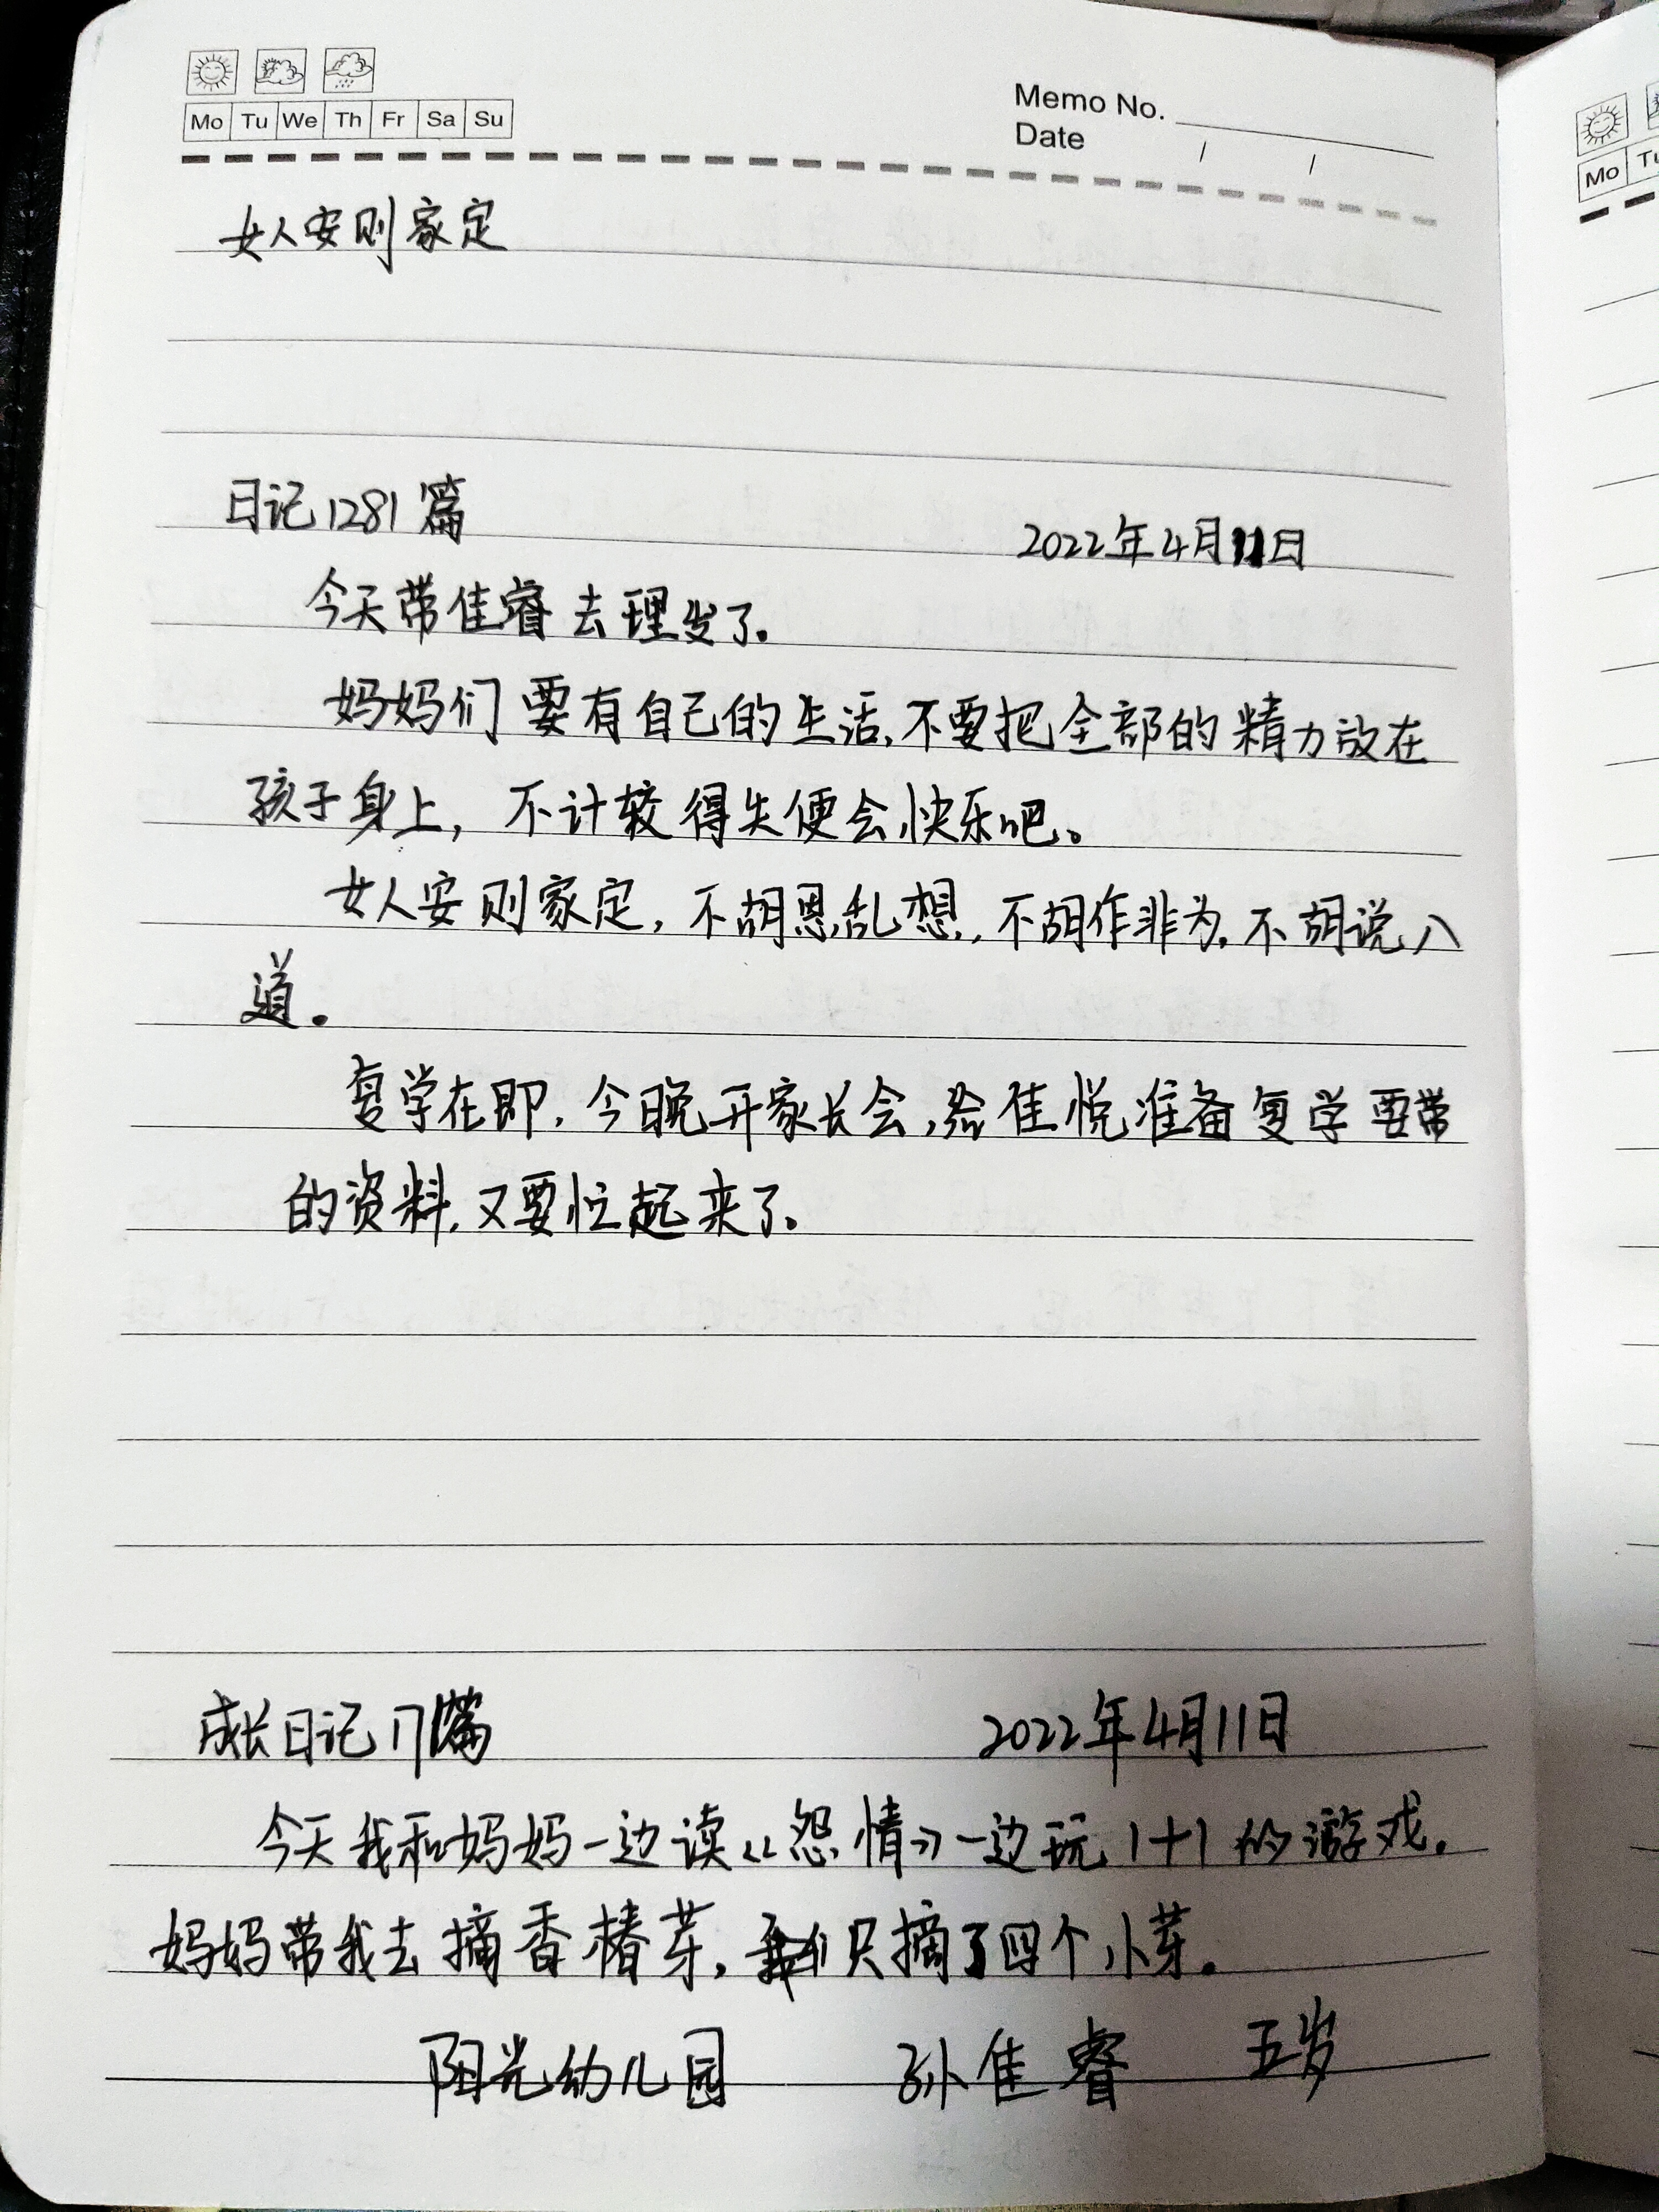 Mo Tu We Th Fr Sa Su
Memo No.
Date / /
女人安则家定
日记1281篇
2022年4月11日
今天带佳睿去理发了.
妈妈们要有自己的生活,不要把全部的精力放在
孩子身上,不计较得失便会快乐吧。
女人安则家定,不胡思乱想,不胡作非为,不胡说八
道。
复学在即,今晚开家长会,给佳悦准备复学要带
的资料,又要忙起来了.
成长日记 篇
2022年4月11日
今天我和妈妈一边读《怨情》一边玩1+1的游戏.
妈妈带我去摘香椿芽,我们只摘了四个小芽。
阳光幼儿园 孙佳睿 五岁
Mo